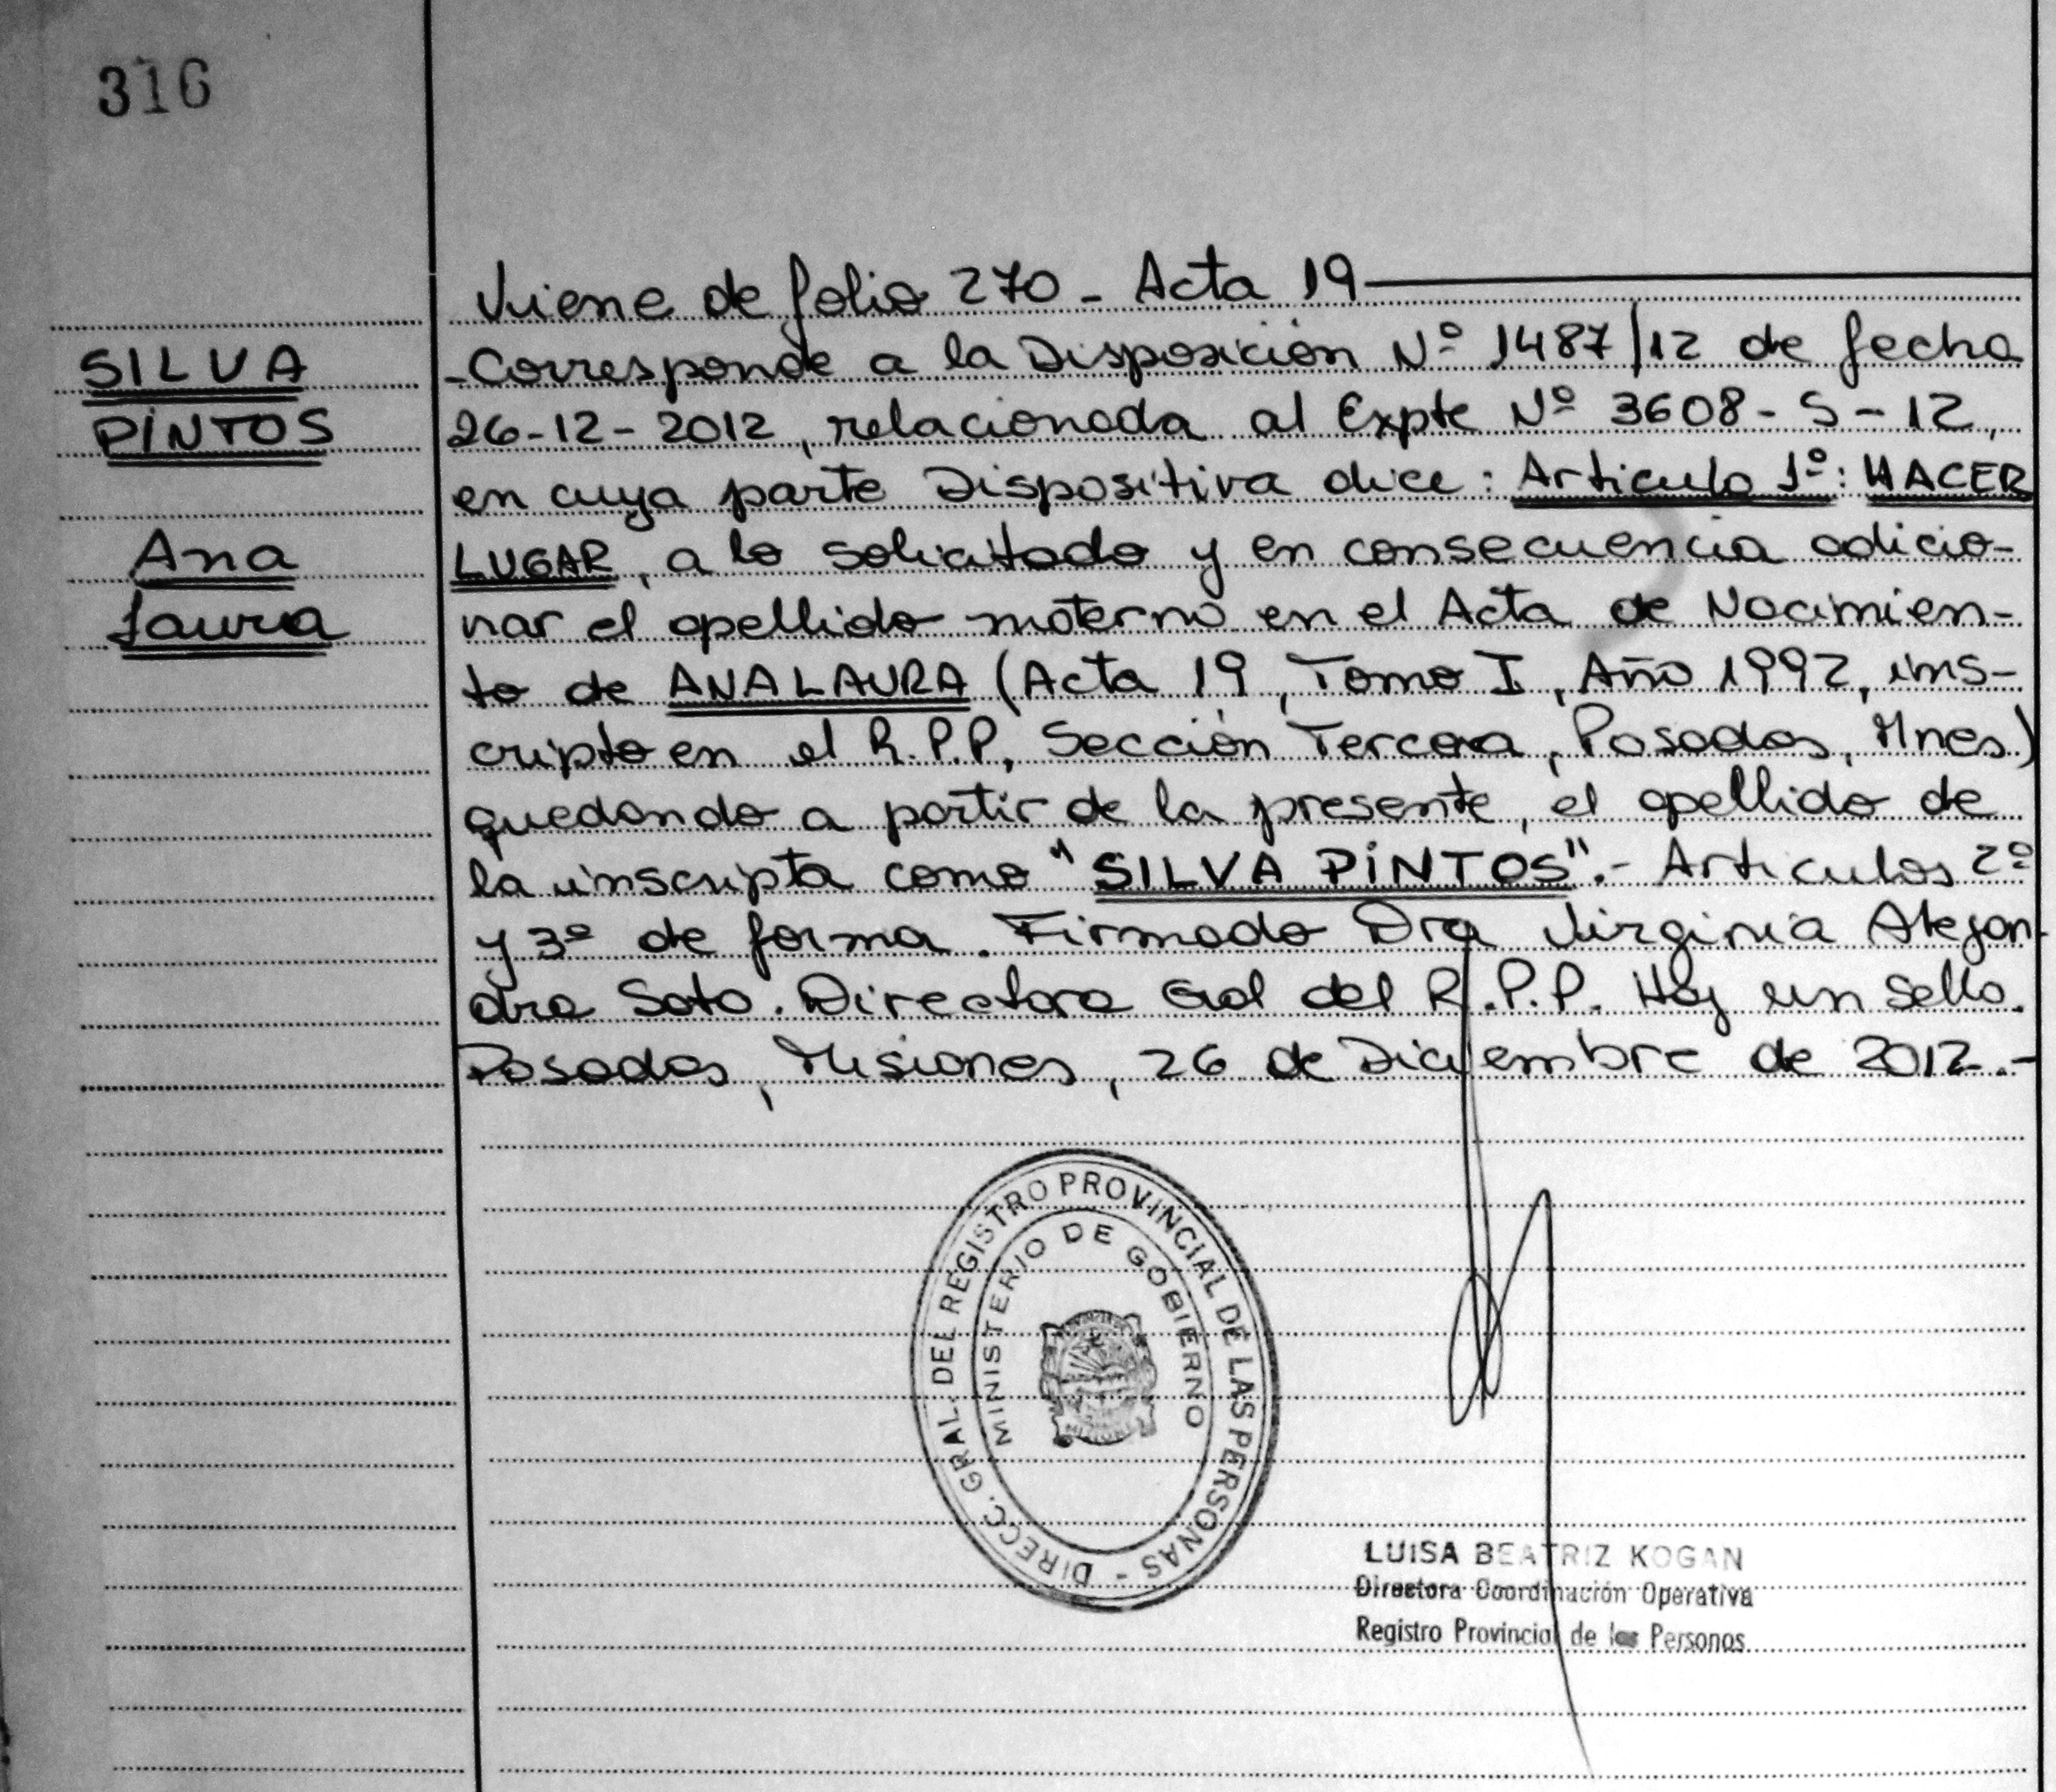 316
SILVA
PINTOS
Ana
Laura
Viene de folio 270 - Acta 19
-Corresponde a la Disposición Nº 1487/12 de fecha
26-12-2012, relacionada al Expte Nº 3608-S-12,
en cuya parte Dispositiva dice: Articulo 1º: HACER
LUGAR, a lo solicitado y en consecuencia adicio-
nar el apellido materno en el Acta de Nacimien-
to de ANA LAURA (Acta 19, Tomo I, Año 1992, ins-
cripto en el R.P.P, Sección Tercera, Posadas, Mnes)
quedando a partir de la presente, el apellido de
la inscripta como "SILVA PINTOS".- Articulos 2º
y 3º de forma. Firmado Dra Virginia Alejan-
dra Soto. Directora Gral del R.P.P. Hay un sello.
Posadas, Misiones, 26 de Diciembre de 2012.-
DIRECC. GRAL. DEL REGISTRO PROVINCIAL DE LAS PERSONAS -
MINISTERIO DE GOBIERNO
LUISA BEATRIZ KOGAN
Directora Coordinación Operativa
Registro Provincial de las Personas